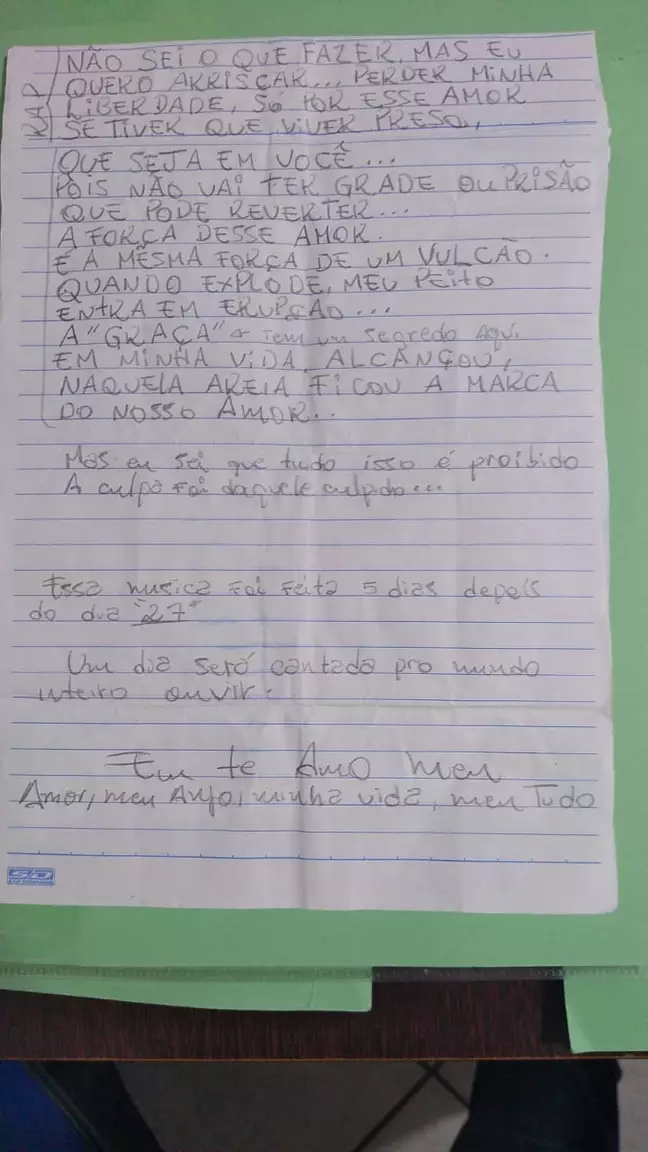 RAP
NÃO SEI O QUE FAZER, MAS EU
QUERO ARRISCAR... PERDER MINHA
LIBERDADE, SÓ POR ESSE AMOR
SE TIVER QUE VIVER PRESO,
QUE SEJA EM VOCÊ...
POIS NÃO VAI TER GRADE OU PRISÃO
QUE PODE REVERTER...
A FORÇA DESSE AMOR.
É A MESMA FORÇA DE UM VULCÃO.
QUANDO EXPLODE, MEU PEITO
ENTRA EM ERUPÇÃO...
A "GRAÇA" Tem um segredo aqui.
EM MINHA VIDA, ALCANÇOU,
NAQUELA AREIA FICOU A MARCA
DO NOSSO AMOR...
Mas eu sei que tudo isso é proibido
A culpa foi daquele culpido...
Essa musica foi feita 5 dias depois
do dia "27"
Um dia será cantada pro mundo
inteiro ouvir.
Eu te Amo meu
Amor, meu Anjo, minha vida, meu Tudo
SD